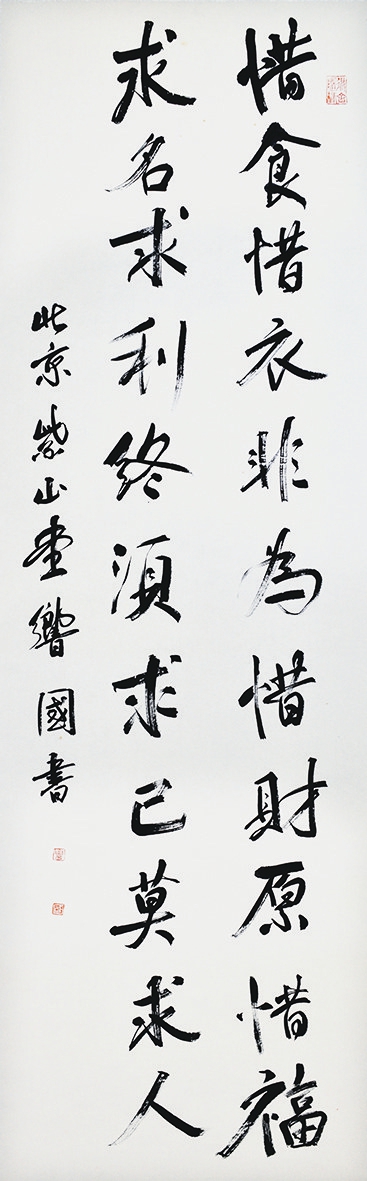 惜食惜衣非為惜財原惜福
求名求利終須求己莫求人
北京紫山堂響國書